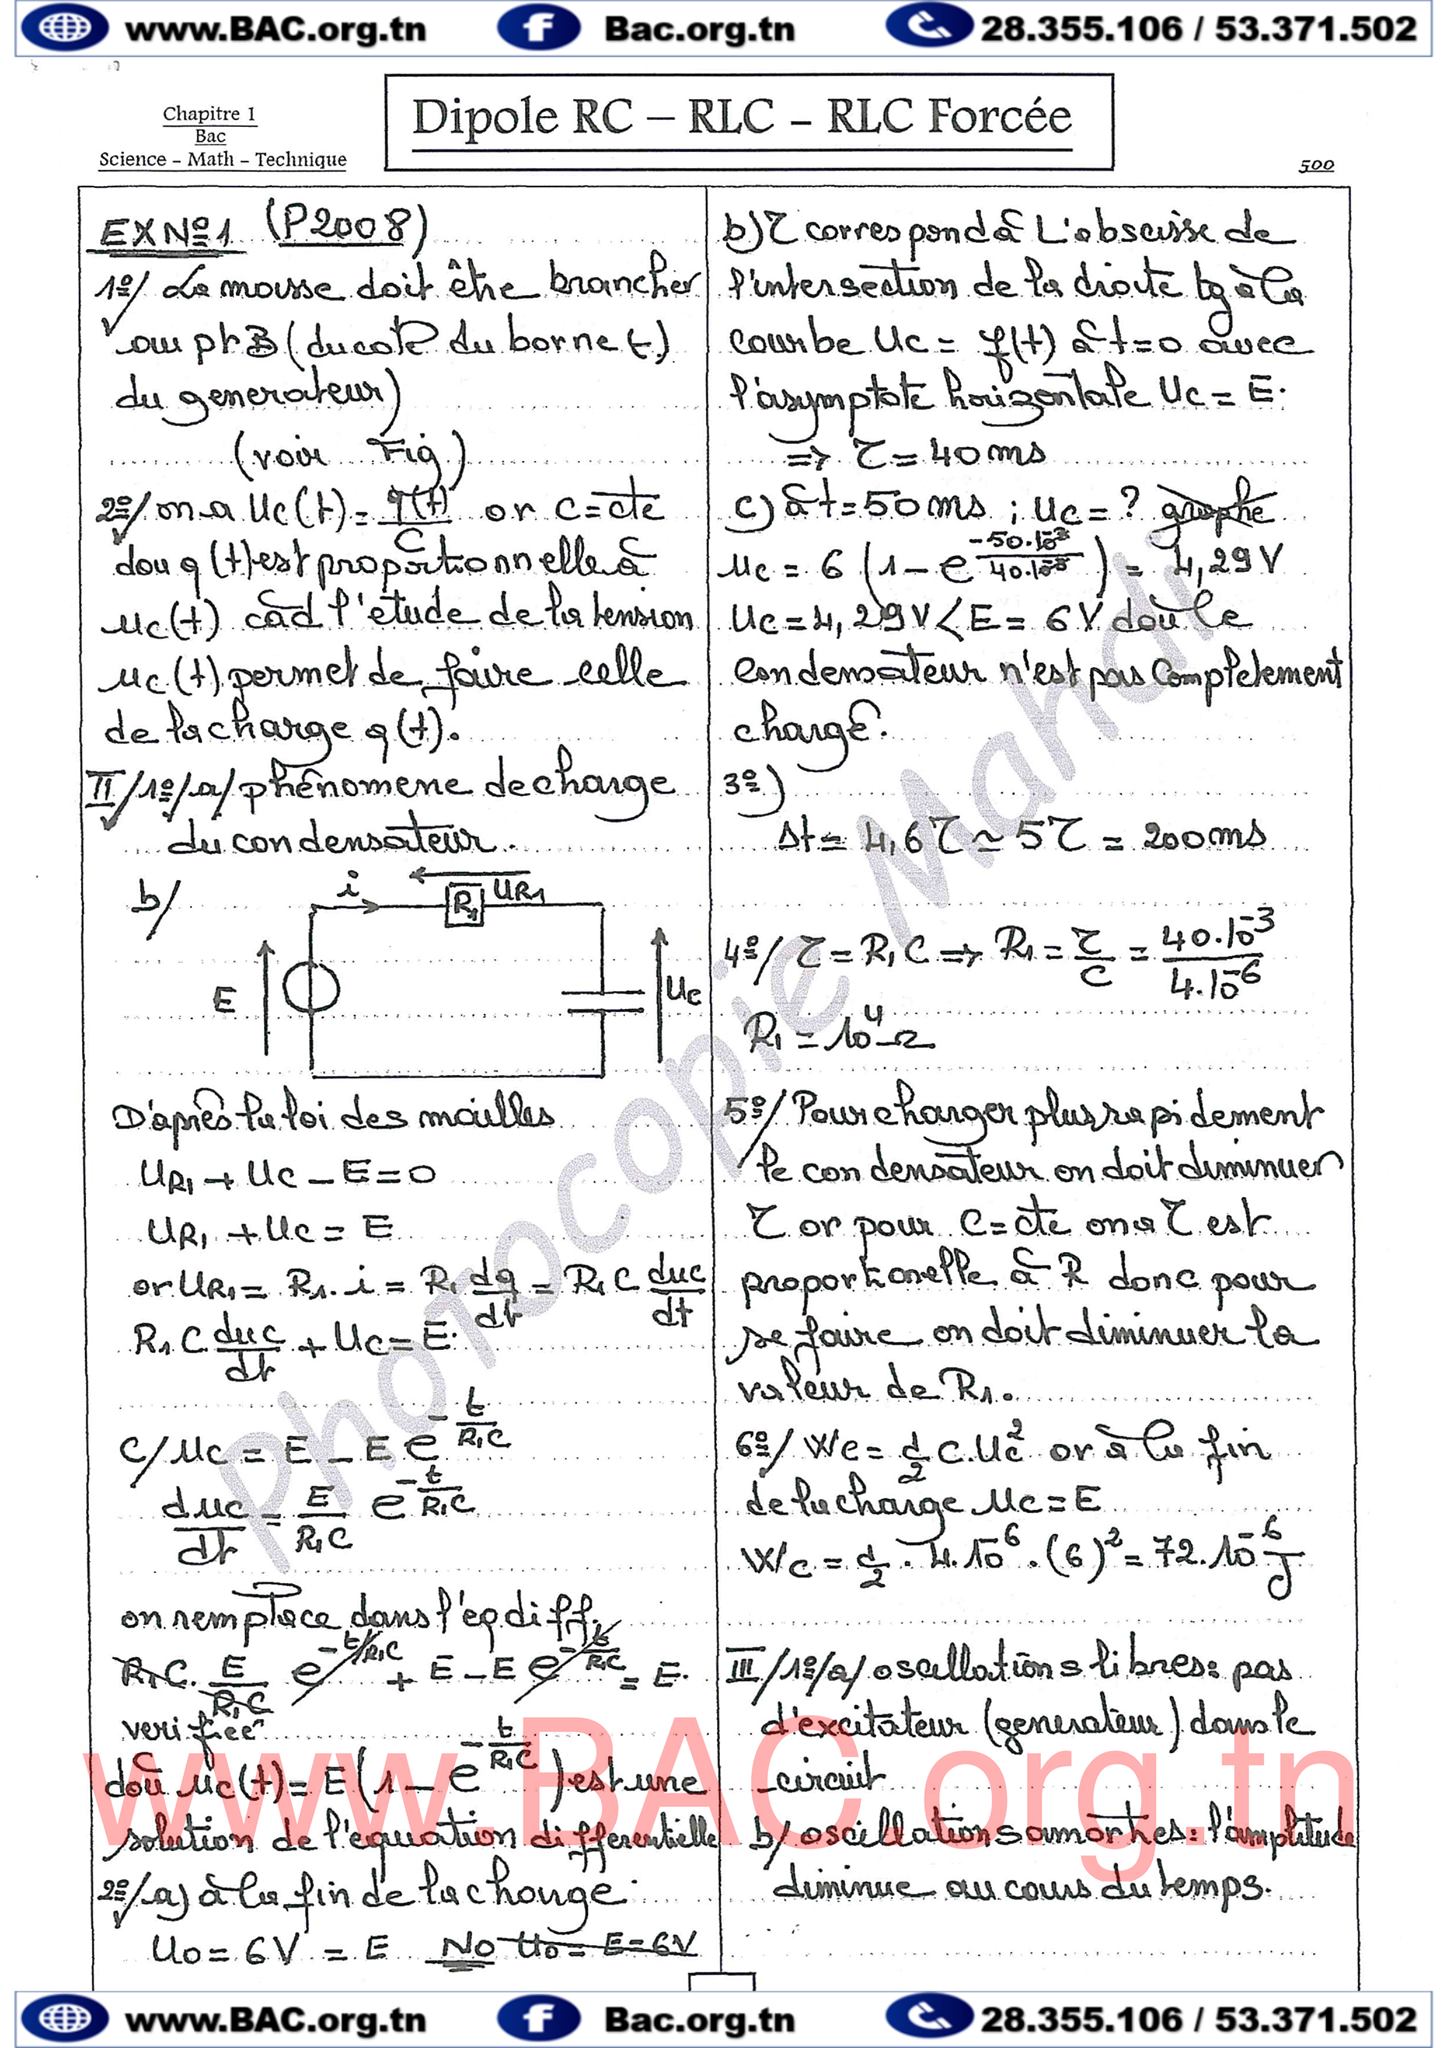 www.BAC.org.tn Bac.org.tn 28.355.106 / 53.371.502
Chapitre 1
Bac
Science – Math – Technique
Dipole RC – RLC – RLC Forcée
500
EX Nº1 (P2008)
1º/ La masse doit être brancher
au pt B (du coté du borne (-)
du generateur)
(voir Fig)
2º/ on a Uc(t) = q(t)/C or C = cte
dou q(t) est proportionnelle à
uc(t) càd l'étude de la tension
uc(t) permet de faire celle
de la charge q(t).
II/1º/a/ phénomene de charge
du condensateur.
b/
i UR1
R1
E Uc
D'après la loi des mailles
UR1 + Uc – E = 0
UR1 + Uc = E
or UR1 = R1.i = R1 dq/dt = R1 C duc/dt
R1 C duc/dt + Uc = E.
C/ uc = E – E e^(-t/R1C)
duc/dt = E/R1C e^(-t/R1C)
on remplace dans l'eq diff.
R1C. E/R1C e^(-t/R1C) + E – E e^(-t/R1C) = E.
verifieé
doù uc(t) = E(1 – e^(-t/R1C)) est une
solution de l'equation differentielle
2º/a) à la fin de la charge.
U0 = 6V = E No U0 = E = 6V
b) τ correspond à L'abscisse de
l'intersection de la droite tg à la
courbe Uc = f(t) à t=0 avec
l'asymptote horizontale Uc = E.
=> τ = 40 ms
c) à t = 50 ms ; uc = ? graphe
uc = 6 (1 – e^(-50.10^-3/40.10^-3)) = 4,29 V
Uc = 4,29 V < E = 6 V doù le
condensateur n'est pas Completement
chargé.
3º)
Δt = 4,6 τ ≃ 5 τ = 200 ms
4º/ τ = R1 C => R1 = τ/C = 40.10^-3/4.10^-6
R1 = 10^4 Ω
5º/ Pour charger plus rapidement
le condensateur on doit diminuer
τ or pour C = cte on a τ est
proportionelle à R donc pour
se faire on doit diminuer la
valeur de R1.
6º/ We = 1/2 C.Uc² or à la fin
de la charge uc = E
Wc = 1/2 . 4.10^-6 . (6)² = 72.10^-6 J
III/1º/a/ oscillations libres: pas
d'excitateur (generateur) dans le
circuit
b/ oscillations amorties: l'amplitude
diminue au cours du temps.
Photocopie Mahdi
www.BAC.org.tn
www.BAC.org.tn Bac.org.tn 28.355.106 / 53.371.502